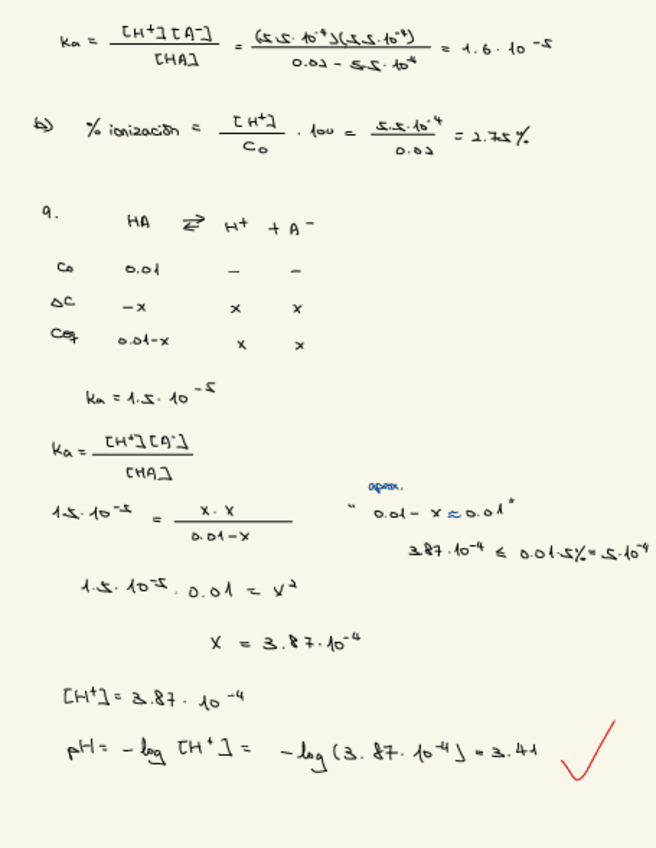 Ka = [H+][A-] / [HA] = (5.5·10^-4)(5.5·10^-4) / 0.02 - 5.5·10^-4 = 1.6·10^-5
b) % ionización = [H+] / Co · 100 = 5.5·10^-4 / 0.02 = 2.75%
9. HA ⇄ H+ + A-
Co 0.01 - -
ΔC -x x x
Ceq 0.01-x x x
Ka = 1.5·10^-5
Ka = [H+][A-] / [HA]
aprox.
1.5·10^-5 = x·x / 0.01-x " 0.01-x ≈ 0.01"
3.87·10^-4 ≤ 0.01·5% = 5·10^-4
1.5·10^-5 · 0.01 = x²
x = 3.87·10^-4
[H+] = 3.87·10^-4
pH = -log [H+] = -log (3.87·10^-4) = 3.41